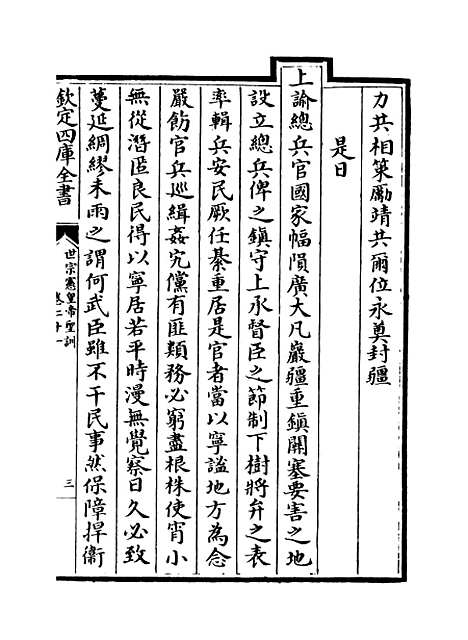 力共相策勵靖共爾位永奠封疆
是日
上諭總兵官國家幅隕廣大凡巖疆重鎮關塞要害之地
設立總兵俾之鎮守上承督臣之節制下樹將弁之表
率輯兵安民厥任綦重居是官者當以寧謐地方為念
嚴飭官兵巡緝姦宄儻有匪類務必窮盡根株使宵小
無從潛匿良民得以寧居若平時漫無覺察日久必致
蔓延綢繆未雨之謂何武臣雖不干民事然保障捍衛
欽定四庫全書
世宗憲皇帝聖訓
卷二十一
三